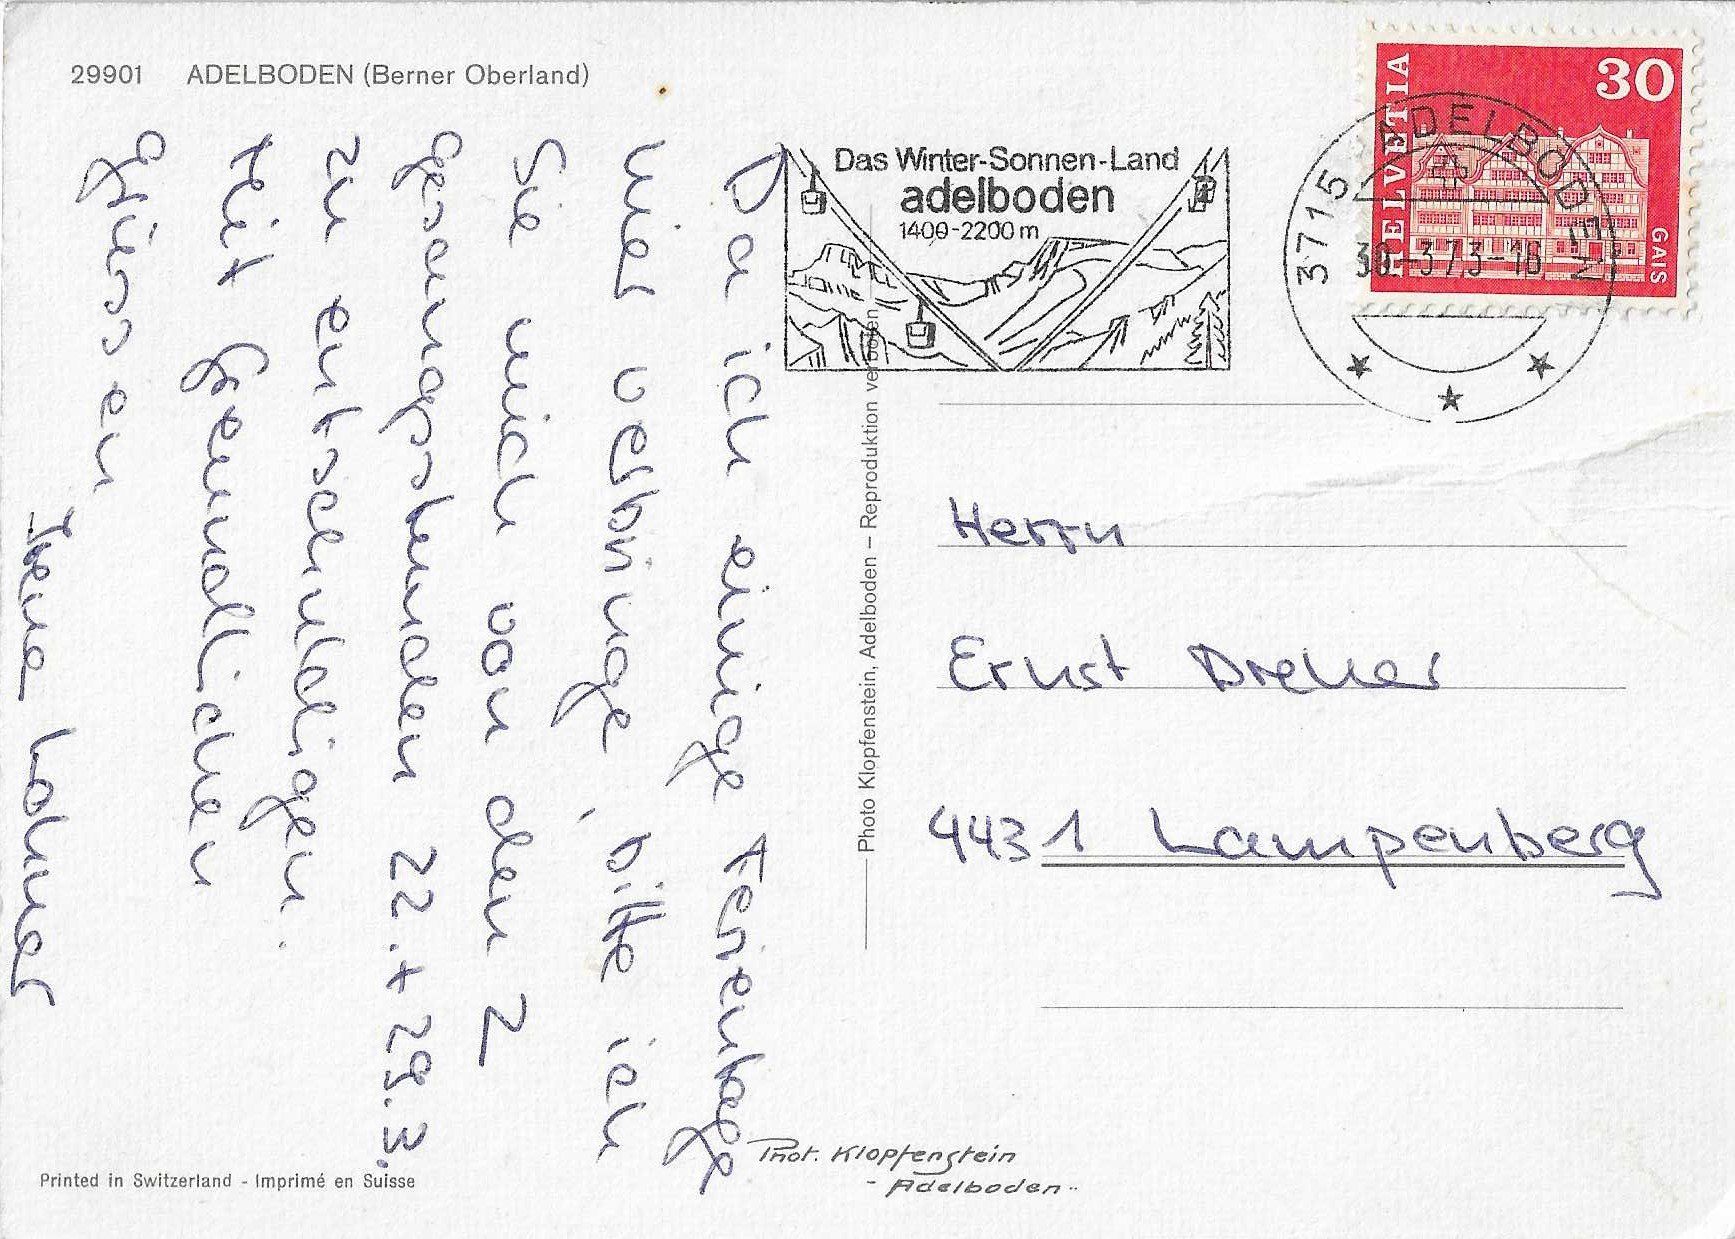 29901 ADELBODEN (Berner Oberland)
Da ich einige Ferientage
hier verbringe, bitte ich
Sie mich von den 2
Gesangsstunden 22.+29.3.
zu entschuldigen.
Mit freundlichen
Grüssen
Irene
Das Winter-Sonnen-Land
adelboden
1400-2200 m
3715 ADELBODEN
30.-3.73-16
HELVETIA
30
GAIS
Herrn
Ernst Dreher
4431 Lampenberg
Photo Klopfenstein, Adelboden – Reproduktion verboten
Phot. Klopfenstein
- Adelboden -
Printed in Switzerland - Imprimé en Suisse